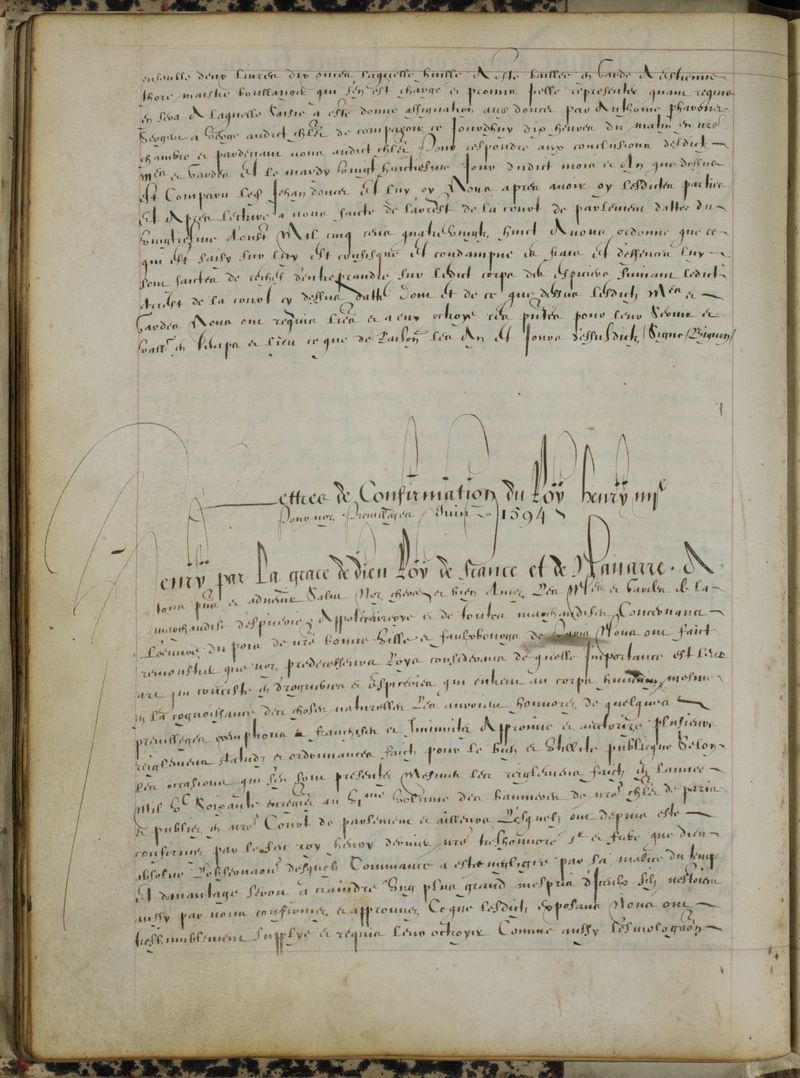 ensemble deux livres dix onces laquelle huille A este baillee en garde A estienne
thore maistre boullanger qui sen est charge et promis icelle representer quant requis
en sera A laquelle saisie a este donne assignation aux doncer par Anthoine
sergent a verge audict chlet de comparoir ce jourdhuy dix heures du matin en nre
chambre et pardevant nous audict chlet Pour respondre aux conclusions desdictz
mes et gardes Et le mardy vingt huictiesme jour dudict mois et An que dessus
Est Comparu led Jehan doncer Et luy oy Nous apres avoir oy lesdictes parties
Et Apres lecture a nous faicte de larrest de la court de parlement datte du
vingtiesme daoust Mil cinq cens quatre vingtz huict Avons ordonne que ce
qui est saisy sur luy est confisque Et condampne es fraiz Et deffences luy
sont faictes de rechef dentreprendre sur ledict corps des espiciers suivant ledict
Arrest de la court cy dessus datte Dont et de ce que dessus lesdictz mes et
gardes Nous ont requis lres et a eux octroye ces pntes pour leur servir et
valloir en temps et lieu ce que de raison Les An Et jours dessusdictz / Signe / Bignon /
Lettres de Confirmation du Roy henry iiije
Pour noz Previlleges Juin 1594
Henry par La grace de dieu Roy de france et de Navarre . A
tous pns et advenir Salut Noz chers et bien Amez Les Mes et Gardes de la
marchandise despicerie Appoticairerye et de toutes marchandises Concernans
Loeuvre du poix de nre bonne ville et faulxbourgs de Paris Nous ont faict
remonstrer que noz predecesseurs Roys considerans de quelle Importance est leur
art qui consiste en drogueries et espiceries qui entrent au corps humain mesme
en la cognoissance des choses naturelles Les auroient honnorez de quelques
previlleges exemptions franchises et Immunitez Approuve et auctorize plusieurs
reiglemens statutz et ordonnances faictz pour le bien et utilite publicque Selon
les occasions qui se sont presentes Mesmes les reiglemens faictz en lannee
Mil Vc Soixante enregrez au vme volume des bannieres de nre chlet de paris
& publiez en nre Court de parlement et ailleurs Lesquelz ont depuis este
confirmez par le feu roy henry dernier nre treshonnore sr et frere que dieu
absolve Lobservaon desquelz Commance a estre negligee par la malice du temps
Et davantage seroit a craindre Ung plus grand mespris diceulx silz nestoient
aussy par nous confirmez et approuvez Ce que lesdictz exposans Nous ont
treshumblement supplye et requis leur octroyer Comme aussy